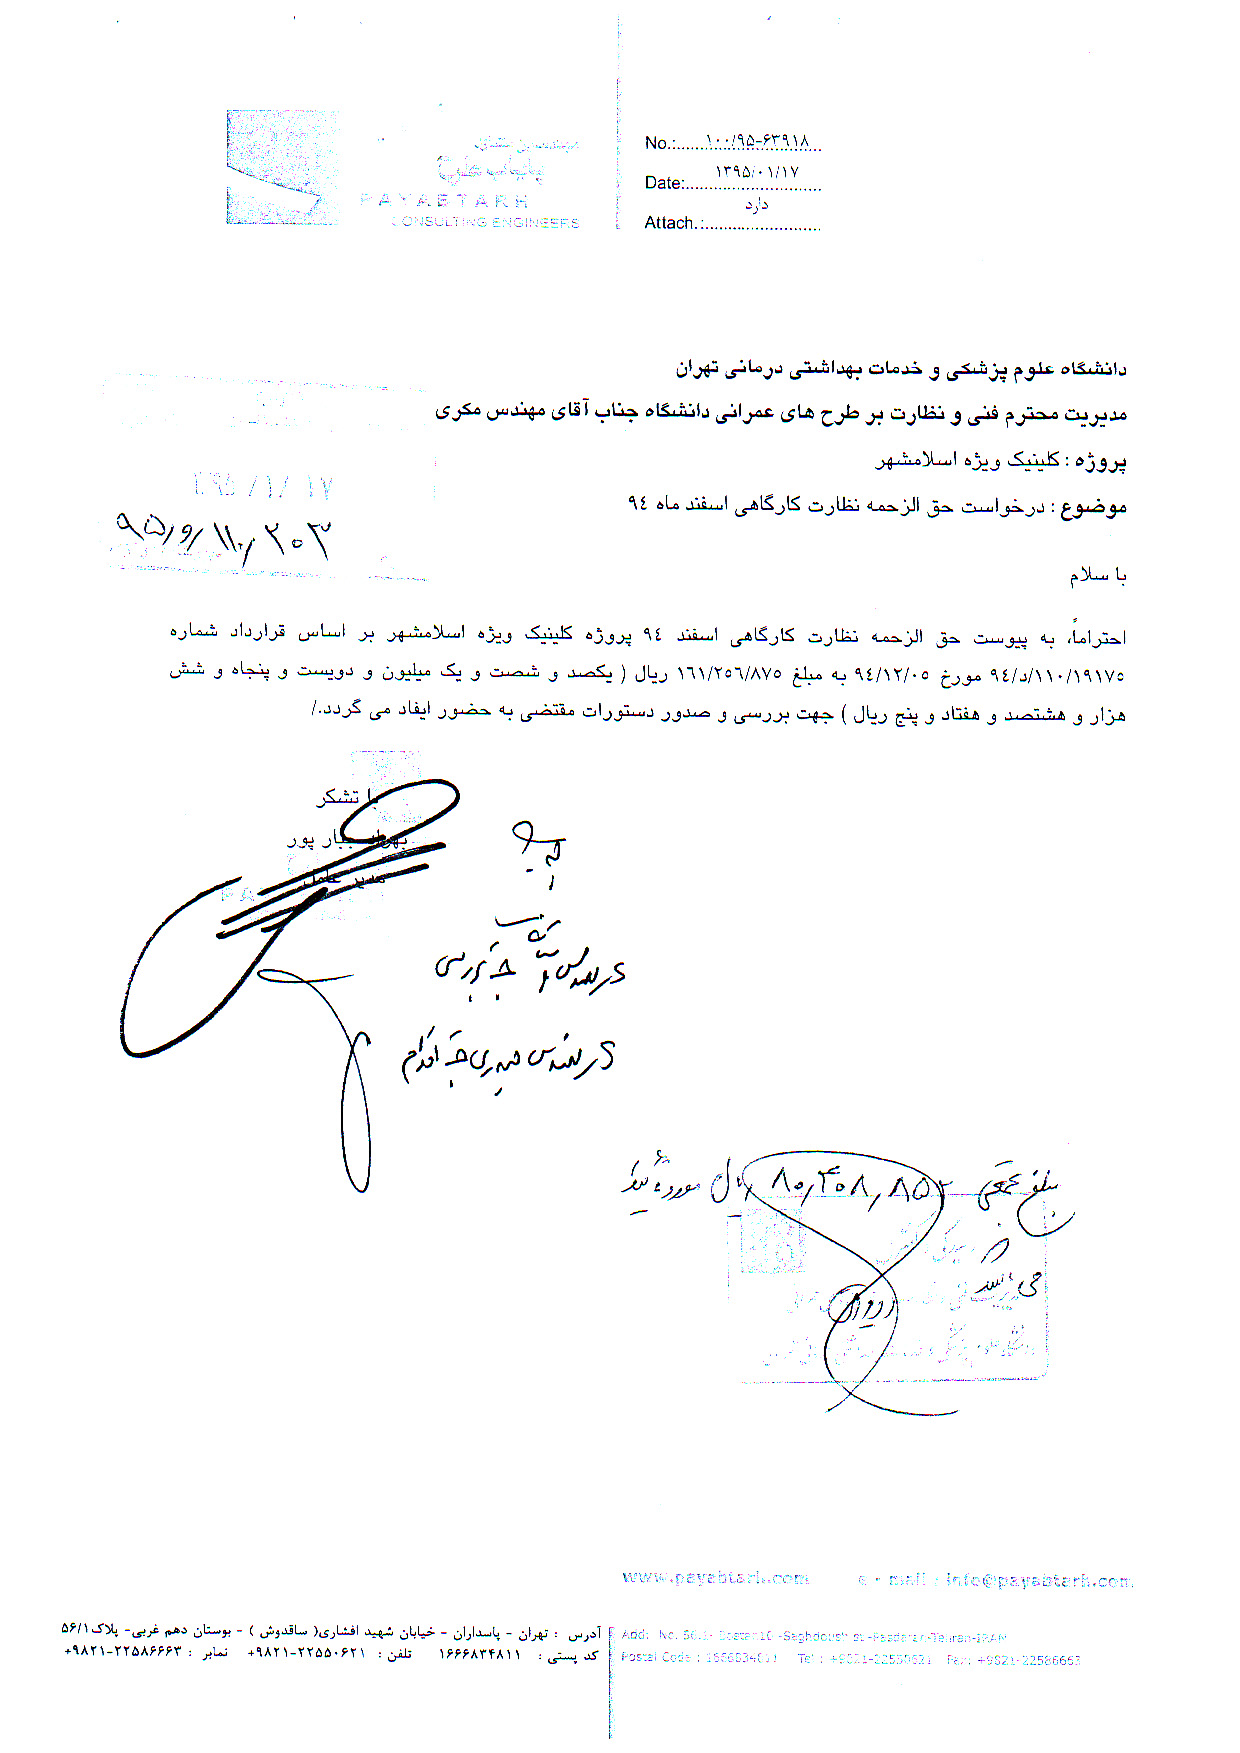 PAYABTAKH
CONSULTING ENGINEERS
No.: ۱۰۰/۹۵-۶۳۹۱۸
Date: ۱۳۹۵/۰۱/۱۷
Attach.: دارد
دانشگاه علوم پزشکی و خدمات بهداشتی درمانی تهران
مدیریت محترم فنی و نظارت بر طرح های عمرانی دانشگاه جناب آقای مهندس مکری
پروژه : کلینیک ویژه اسلامشهر
موضوع : درخواست حق الزحمه نظارت کارگاهی اسفند ماه ۹٤
۱۳۹۵/۱/۱۷
۹۵/و/۱۱۰/۲۰۳
با سلام
احتراماً، به پیوست حق الزحمه نظارت کارگاهی اسفند ۹٤ پروژه کلینیک ویژه اسلامشهر بر اساس قرارداد شماره
۹٤/د/۱۱۰/۱۹۱۷۵ مورخ ۹٤/۱۲/۰۵ به مبلغ ۱٦۱/۲۵٦/۸۷۵ ریال ( یکصد و شصت و یک میلیون و دویست و پنجاه و شش
هزار و هشتصد و هفتاد و پنج ریال ) جهت بررسی و صدور دستورات مقتضی به حضور ایفاد می گردد./
با تشکر
مدیر عامل
مبلغ ۸۰,۴۰۸,۸۵۲ ریال مورد تأیید
می باشد
www.payabtakh.com e - mail : info@payabtakh.com
آدرس : تهران - پاسداران - خیابان شهید افشاری( ساقدوش ) - بوستان دهم غربی- پلاک ۵۶/۱
کد پستی : ۱۶۶۶۸۳۴۸۱۱ تلفن : ۲۲۵۵۰۶۲۱-۹۸۲۱+ نمابر : ۲۲۵۸۶۶۶۳-۹۸۲۱+
Postal Code : 1666834811 Tel : +9821-22550621 Fax: +9821-22586663